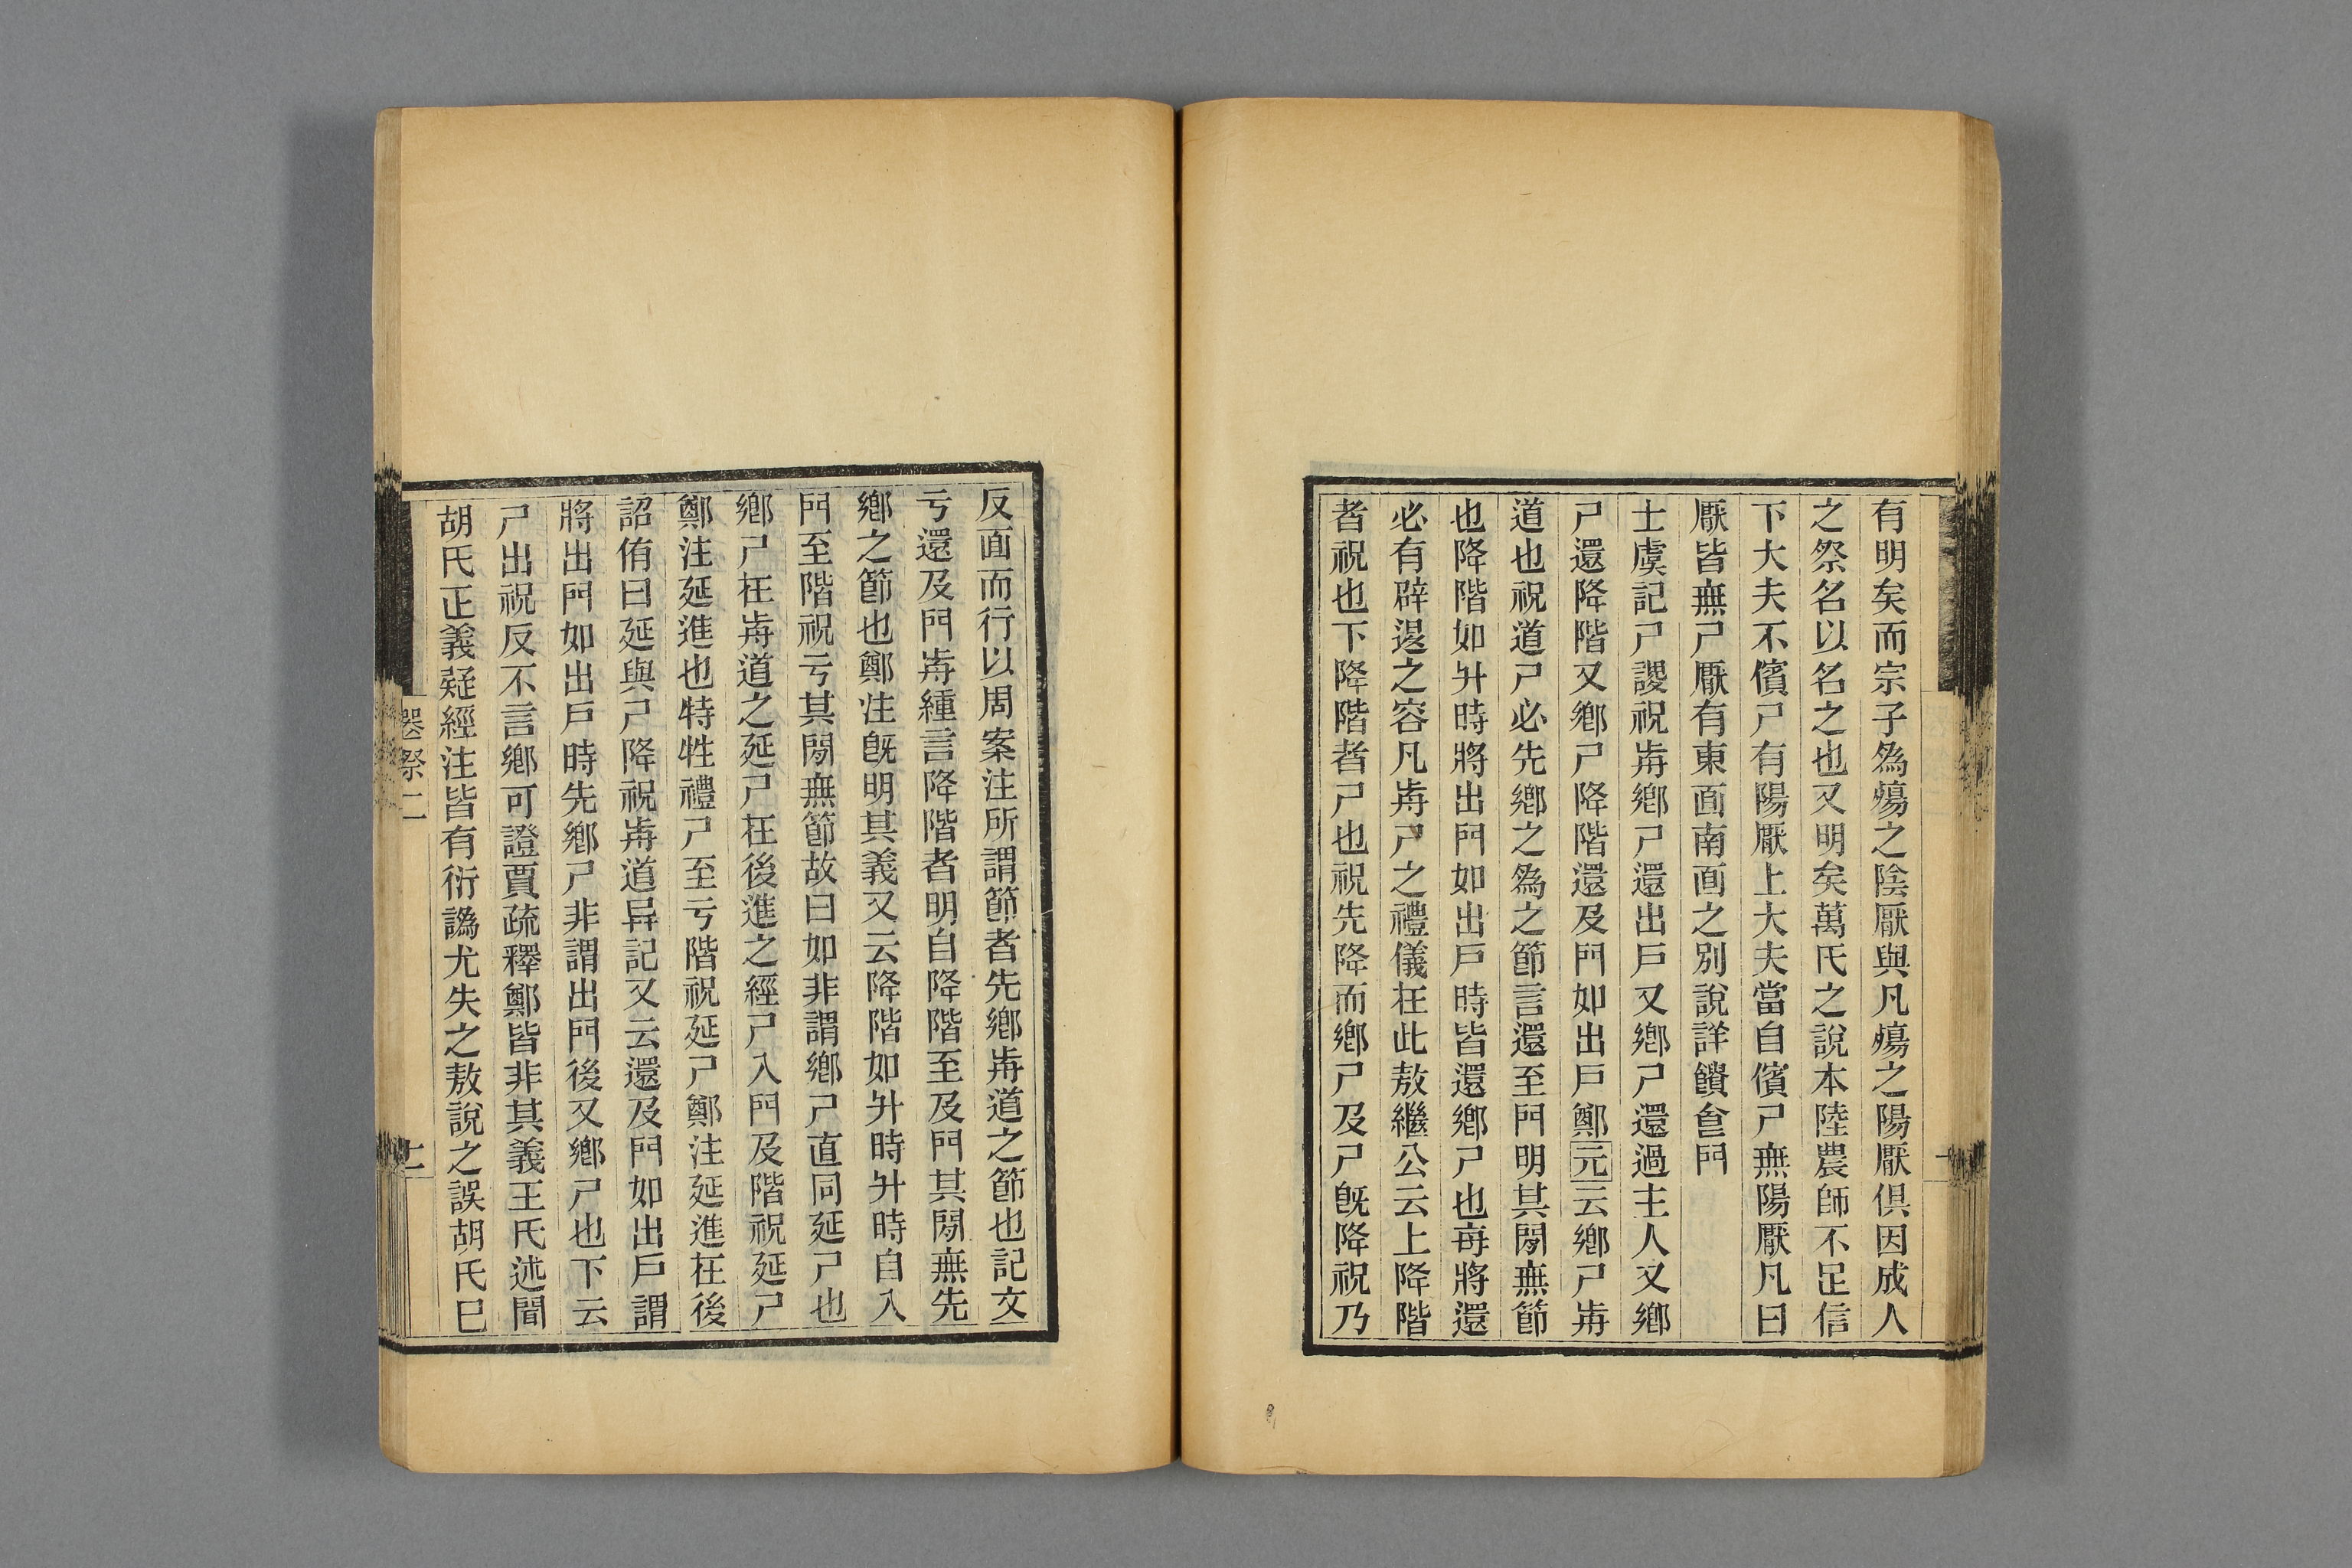 有明矣而宗子為殤之陰厭與凡殤之陽厭俱因成人
之祭名以名之也又明矣萬氏之說本陸農師不足信
下大夫不儐尸有陽厭上大夫當自儐尸無陽厭凡曰
厭皆無尸厭有東面南面之別說詳饋食門
士虞記尸謖祝歬鄉尸還出戶又鄉尸還過主人又鄉
尸還降階又鄉尸降階還及門如出戶鄭元云鄉尸歬
道也祝道尸必先鄉之為之節言還至門明其閒無節
也降階如升時將出門如出戶時皆還鄉尸也每將還
必有辟退之容凡歬尸之禮儀在此敖繼公云上降階
者祝也下降階者尸也祝先降而鄉尸及尸既降祝乃
反面而行以周案注所謂節者先鄉歬道之節也記文
亏還及門歬緟言降階者明自降階至及門其閒無先
鄉之節也鄭注既明其義又云降階如升時升時自入
門至階祝亏其閒無節故曰如非謂鄉尸直同延尸也
鄉尸在歬道之延尸在後進之經尸入門及階祝延尸
鄭注延進也特牲禮尸至亏階祝延尸鄭注延進在後
詔侑曰延與尸降祝歬道异記又云還及門如出戶謂
將出門如出戶時先鄉尸非謂出門後又鄉尸也下云
尸出祝反不言鄉可證賈疏釋鄭皆非其義王氏述聞
胡氏正義疑經注皆有衍譌尤失之敖說之誤胡氏已
祭二